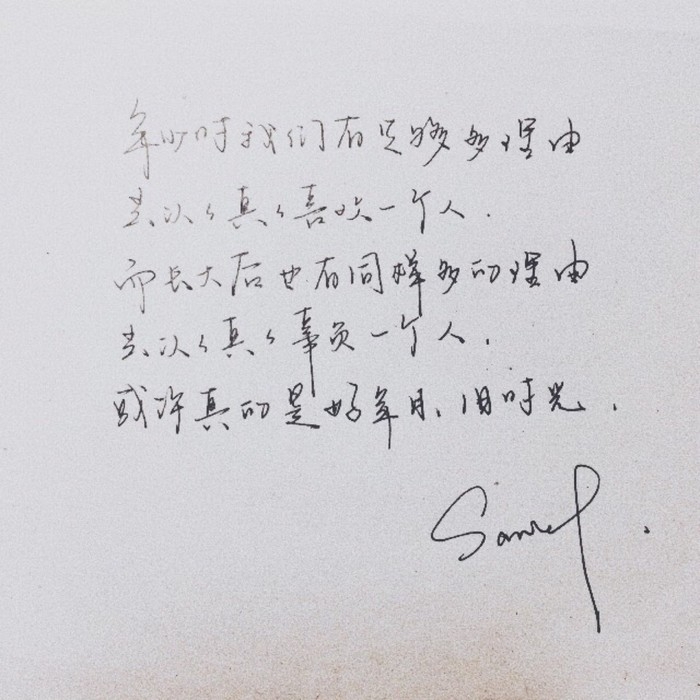 年少时我们有足够多理由
去认认真真喜欢一个人.
而长大后也有同样多的理由
去认认真真辜负一个人.
或许真的是好年月、旧时光.